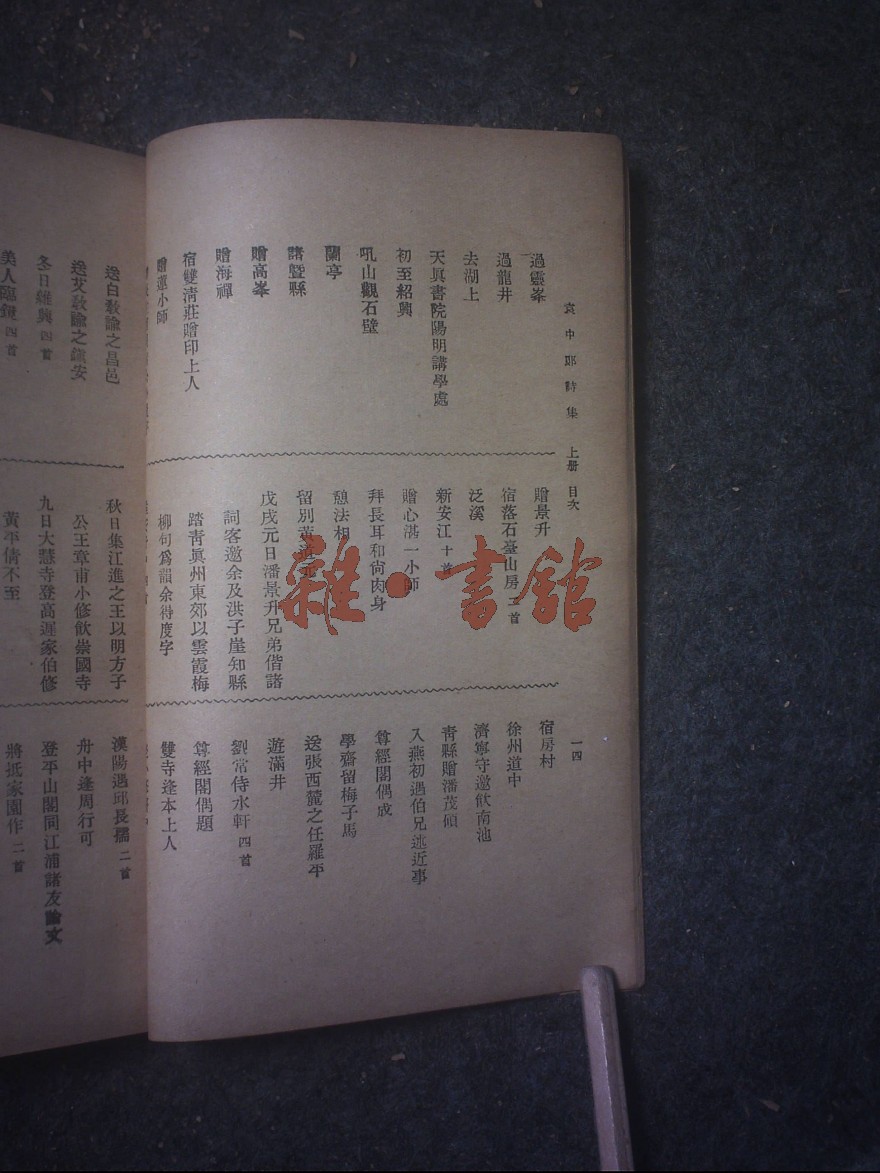 袁中郎詩集 上册 目次
一四
過靈峯
過龍井
去湖上
天眞書院陽明講學處
初至紹興
吼山觀石壁
蘭亭
諸暨縣
贈高峯
贈海禪
宿雙淸莊贈印上人
贈蓮小師
贈景升
宿落石臺山房 二首
泛溪
新安江 十首
贈心湛一小師
拜長耳和尙肉身
憩法相
留別黃
戊戌元日潘景升兄弟偕諸
詞客邀余及洪子崖知縣
踏靑眞州東郊以雲霞梅
柳句爲韻余得度字
宿房村
徐州道中
濟寧守邀飮南池
靑縣贈潘茂碩
入燕初遇伯兄述近事
尊經閣偶成
學齋留梅子馬
送張西麓之任羅平
遊滿井
劉常侍水軒 四首
尊經閣偶題
雙寺逢本上人
送白敎諭之昌邑
送艾敎諭之鎭安
冬日雜興 四首
美人臨鏡 四首
秋日集江進之王以明方子
公王章甫小修飮崇國寺
九日大慧寺登高遲家伯修
黃平倩不至
漢陽遇邱長孺 二首
舟中逢周行可
登平山閣同江浦諸友論文
將抵家園作 二首
雜·書館